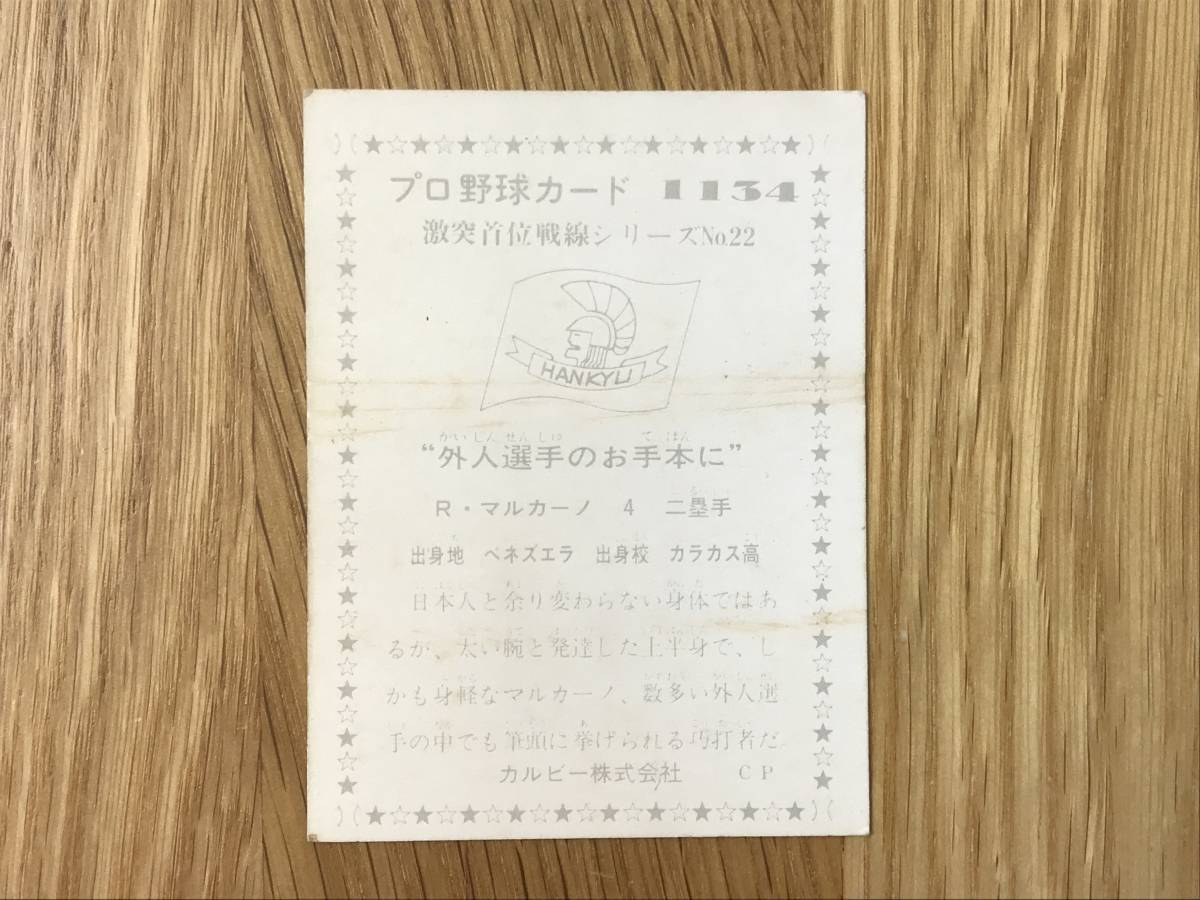 プロ野球カード 1134
激突首位戦線シリーズNo.22
HANKYU
がいじんせんしゅ てほん
“外人選手のお手本に”
R・マルカーノ 4 二塁手
出身地 ベネズエラ 出身校 カラカス高
日本人と余り変わらない身体ではあ
るが、太い腕と発達した上半身で、し
かも身軽なマルカーノ、数多い外人選
手の中でも筆頭に挙げられる巧打者だ
カルビー株式会社 CP